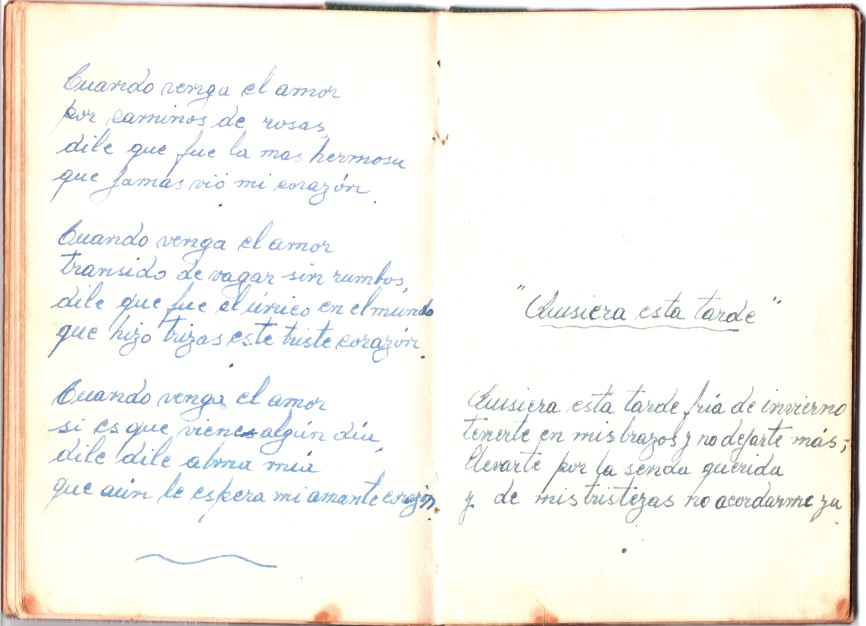 Cuando venga el amor
por caminos de rosas,
dile que fue la mas hermosa
que jamas vió mi corazón.
Cuando venga el amor
transido de vagar sin rumbos,
dile que fue el único en el mundo
que hizo trizas este triste corazón.
Cuando venga el amor
si es que viene algún día,
dile dile alma mía
que aún le espera mi amante corazón
"Quisiera esta tarde"
Quisiera esta tarde fría de invierno
tenerte en mis brazos y no dejarte más;
llevarte por la senda querida
y de mis tristezas no acordarme ya